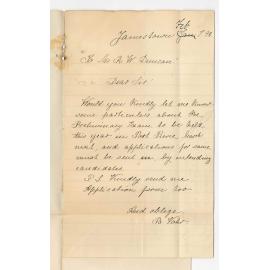 Jamestown Feb
To Mr R W Duncan
Dear Sir
Would you Kindly let me Know
some particulars about the
Preliminary Exam to be held
this year in
and applications for same
must be sent in by intending
candidates
P.S. Kindly send me
Application form too
And oblige
B